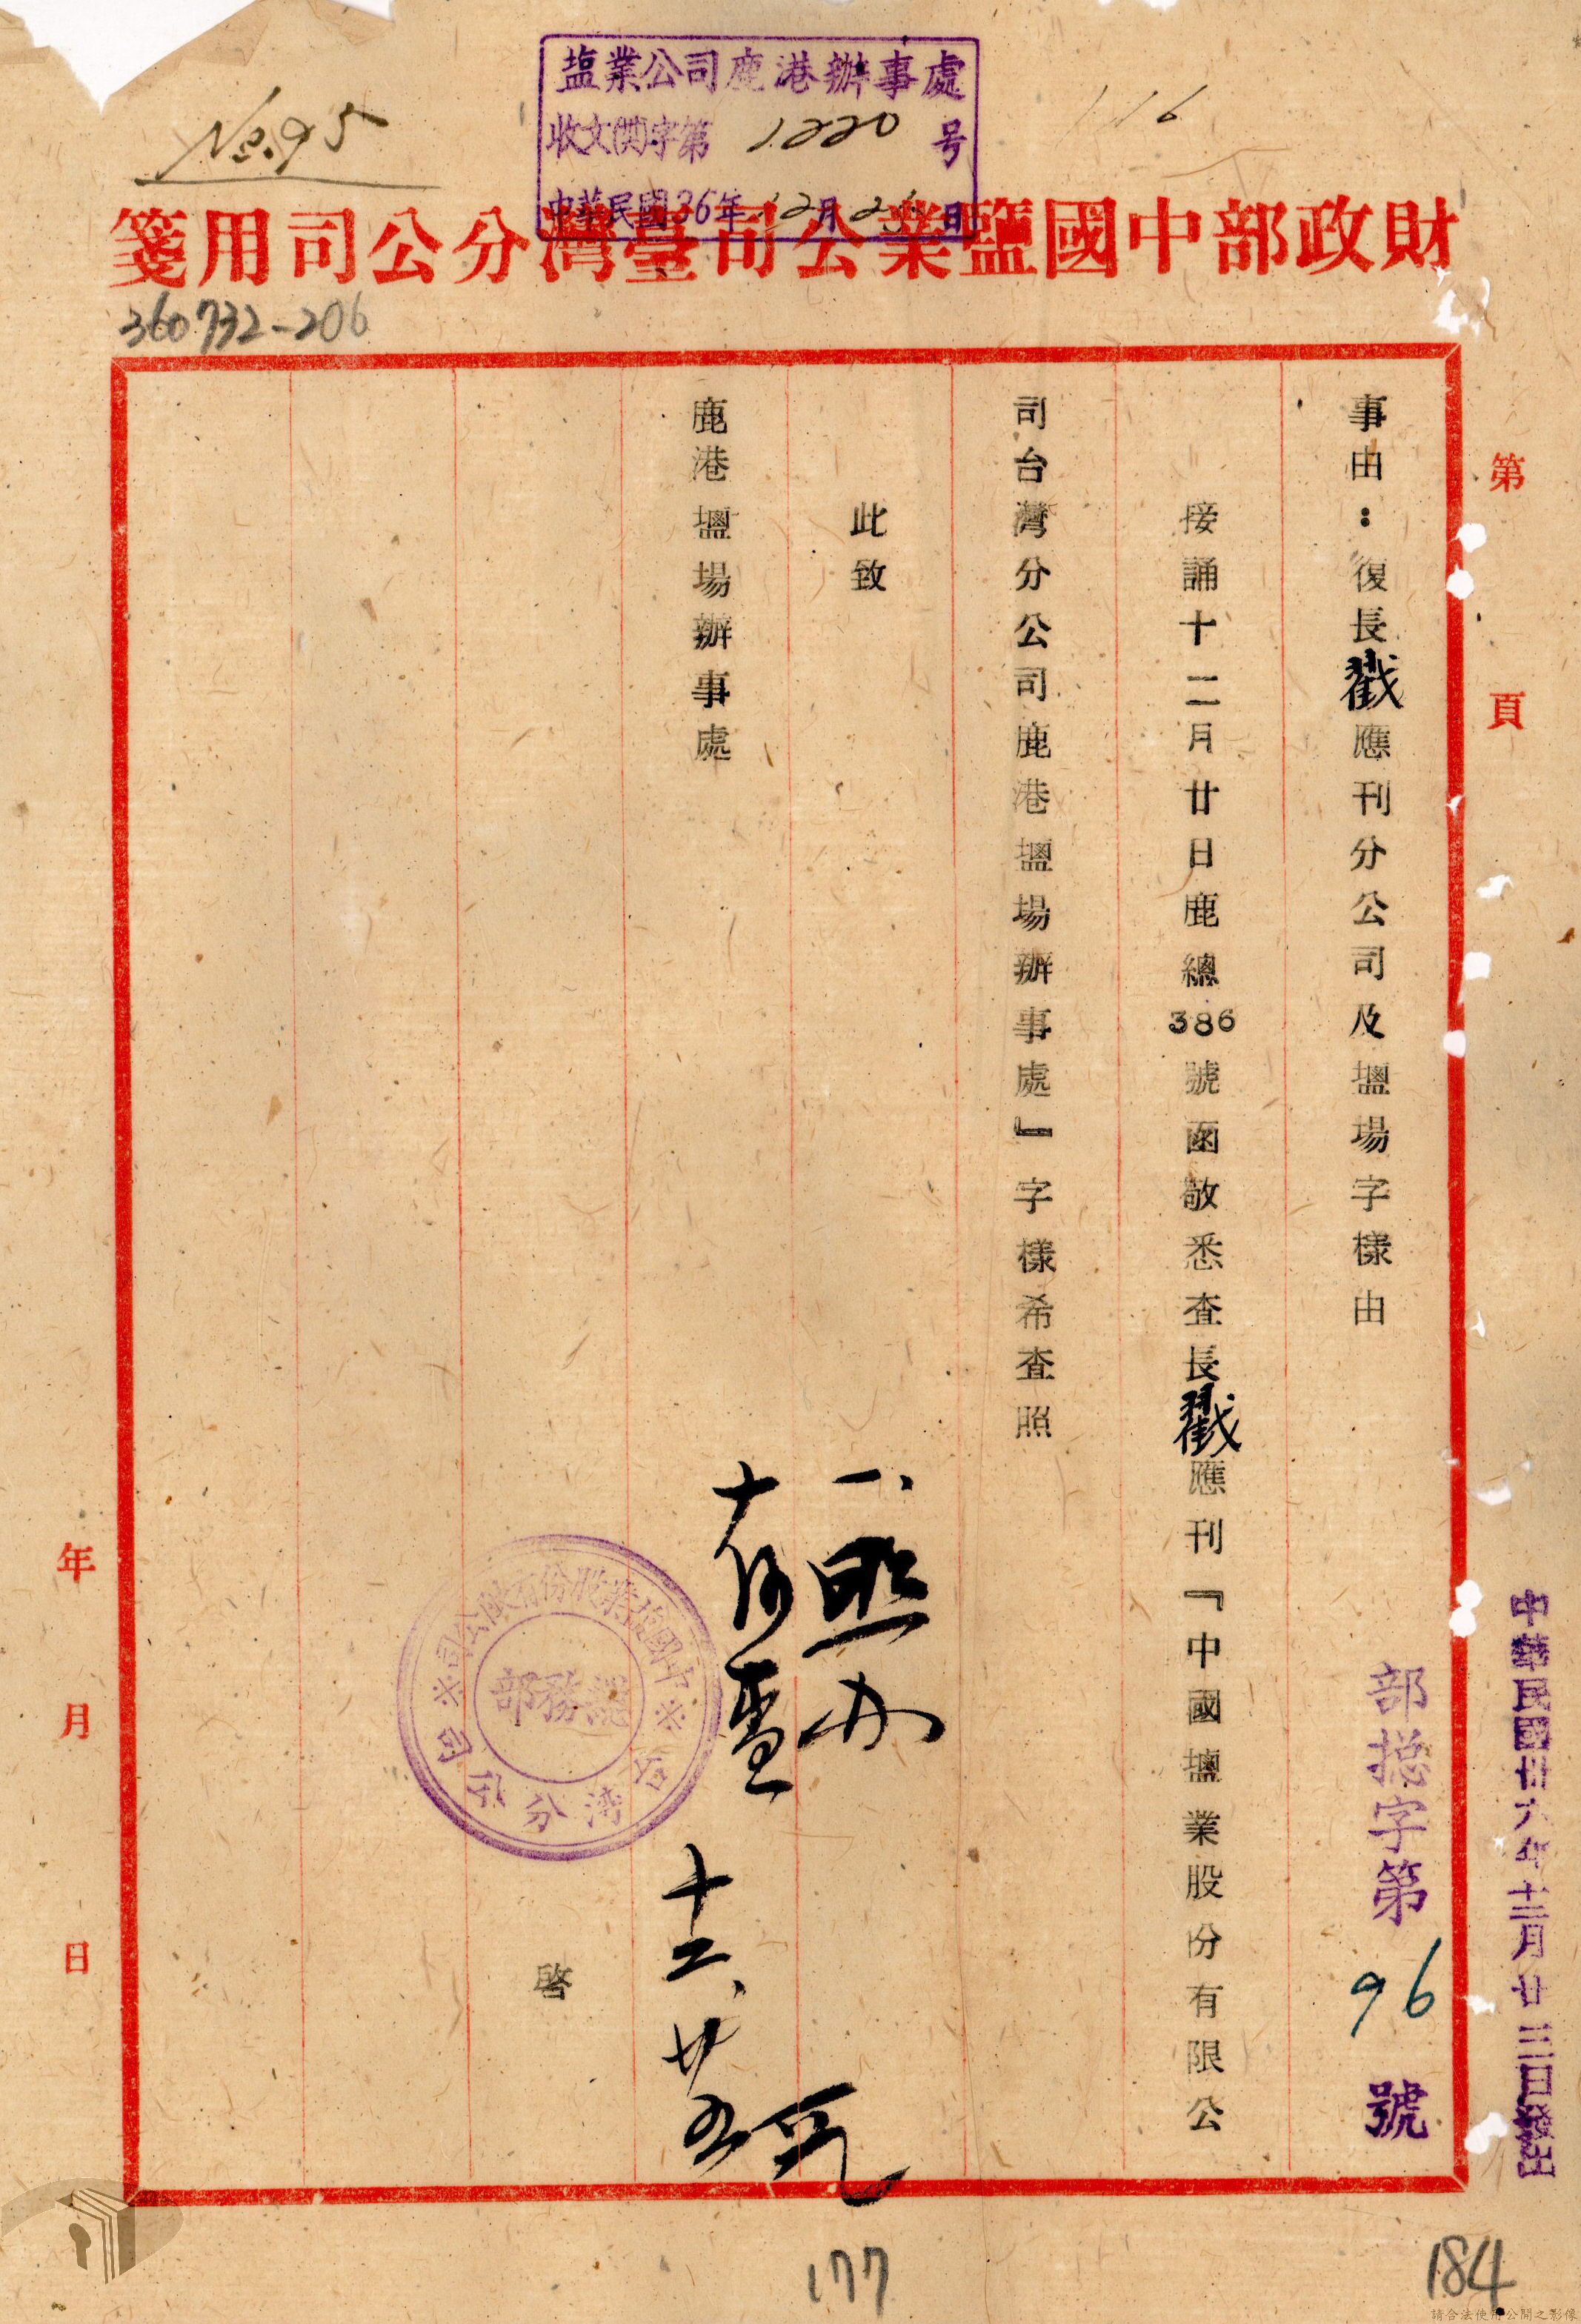 塩業公司鹿港辦事處
收文(關)字第1220号
中華民國36年12月26日
No.95
116
財政部中國鹽業公司臺灣分公司用箋
360732-206
第 頁
中華民國卅六年十二月廿三日發出
部総字第96號
事由：復長戳應刊分公司及塩場字樣由
接誦十二月廿日鹿總386號函敬悉查長戳應刊『中國塩業股份有限公
司台灣分公司鹿港塩場辦事處』字樣希查照
此致
鹿港塩場辦事處
一、照办
十二、廿五
中國塩業股份有限公司
台湾分公司
總務部
啓
年 月 日
177
184
請合法使用公開之影像